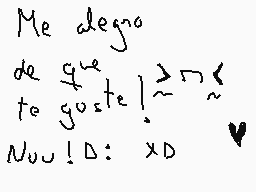 Me alegro
de que
te guste! >~n<~
Nuu! D: XD